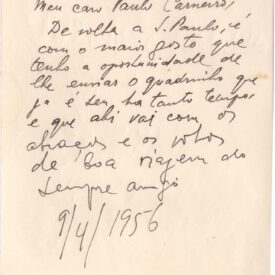 Meu caro Paulo Carneiro,
De volta a S. Paulo, é
com o maior gosto que
tenho a oportunidade de
lhe enviar o quadrinho que
já é seu ha tanto tempo
e que ahi vai com os
abraços e os votos
de boa viagem do
sempre amigo
9/4/1956